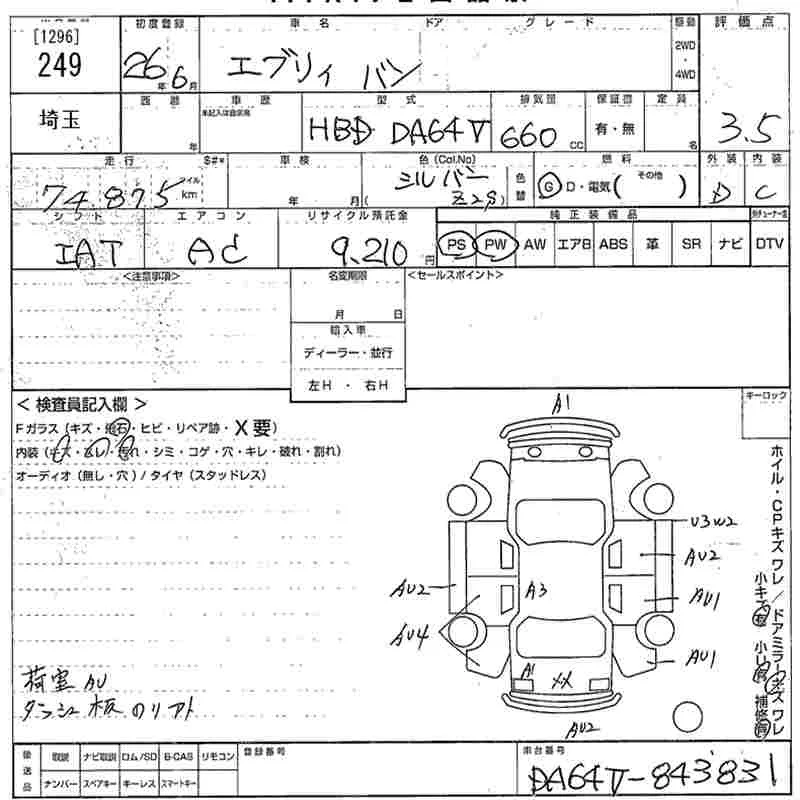 初度登録 車名 ドア グレード 駆動 評価点
[1296]
249
26年 6月 エブリィ バン 2WD・4WD
埼玉
西暦 年 車歴 型式 排気量 保証書 定員
未記入は自家用 HBD DA64V 660 CC 有・無 名 3.5
走行 $#* 車検 色(Col.No) 燃料 外装 内装
74.875 マイル km 年 月 シルバー Z2S 色替 G D・電気( その他 ) D C
シフト エアコン リサイクル預託金 純正装備品
IAT AC 9.210円 PS PW AW エアB ABS 革 SR ナビ DTV
<注意事項> 名変期限 <セールスポイント>
月 日
輸入車
ディーラー・並行
左H ・ 右H
キーロック
< 検査員記入欄 >
Fガラス(キズ・飛石・ヒビ・リペア跡・X要)
内装(キズ・スレ・汚れ・シミ・コゲ・穴・キレ・破れ・割れ)
オーディオ(無し・穴)/タイヤ(スタッドレス)
A1
U3W2
AU2
AU2 A3 AU1
AU4
A1 XX AU1
AU2
ホイル・CPキズ ワレ/ドアミラーキズ ワレ
小キズ有 小凹有 補修有
荷室 AU
ダッシュ板のリアト
後送品 取説 ナビ取説 ロム/SD B-CAS リモコン 登録番号 車台番号
ナンバー スペアキー キーレス スマートキー DA64V-843831